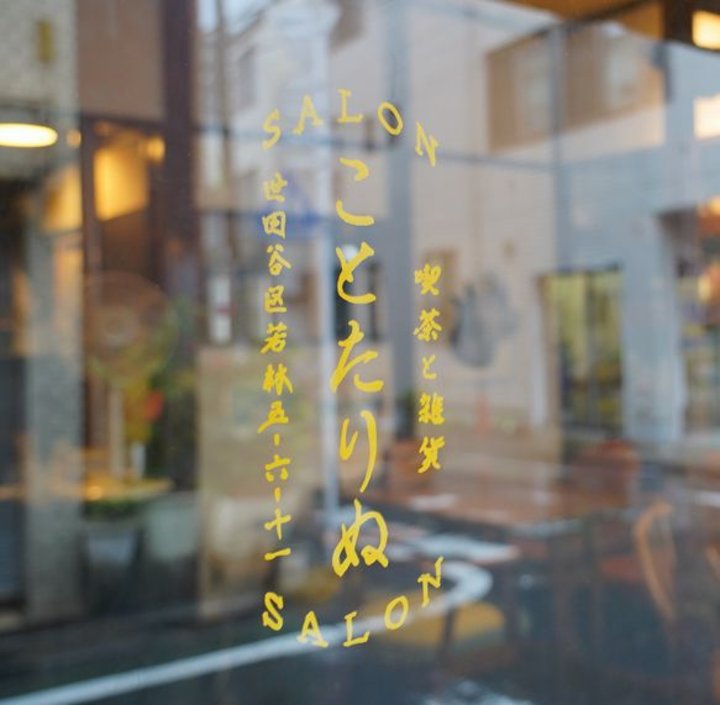 SALON
喫茶と雑貨
ことたりぬ
世田谷区若林五-六-十一
SALON